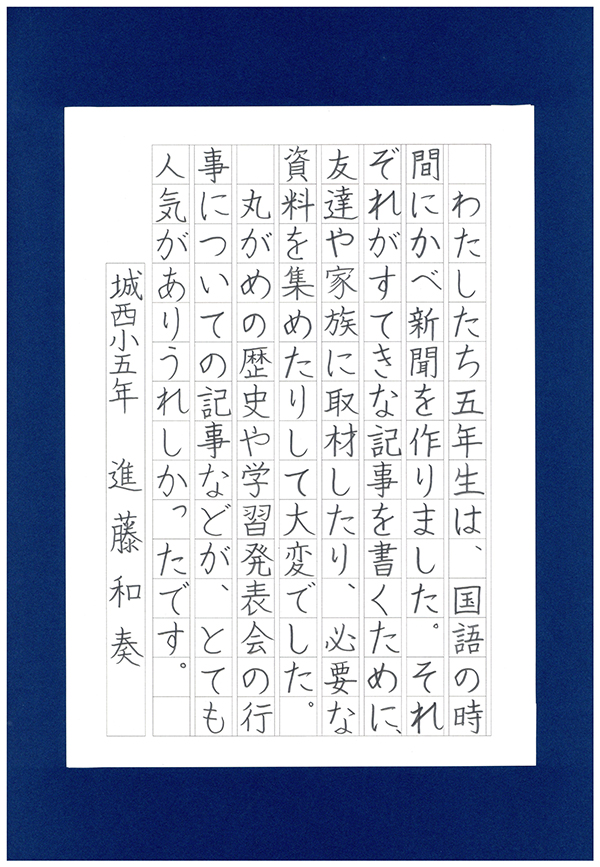 わたしたち五年生は、国語の時
間にかべ新聞を作りました。それ
ぞれがすてきな記事を書くために、
友達や家族に取材したり、必要な
資料を集めたりして大変でした。
丸がめの歴史や学習発表会の行
事についての記事などが、とても
人気がありうれしかったです。
城西小五年 進藤和奏